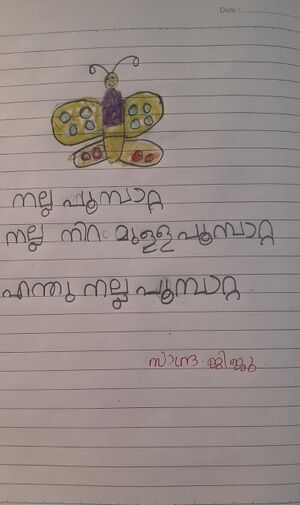 Date :
നല്ല പൂമ്പാറ്റ
നല്ല നിറം മുള്ള പൂമ്പാറ്റ
എന്തു നല്ല പൂമ്പാറ്റ
സാന്ദ്ര ജിജു